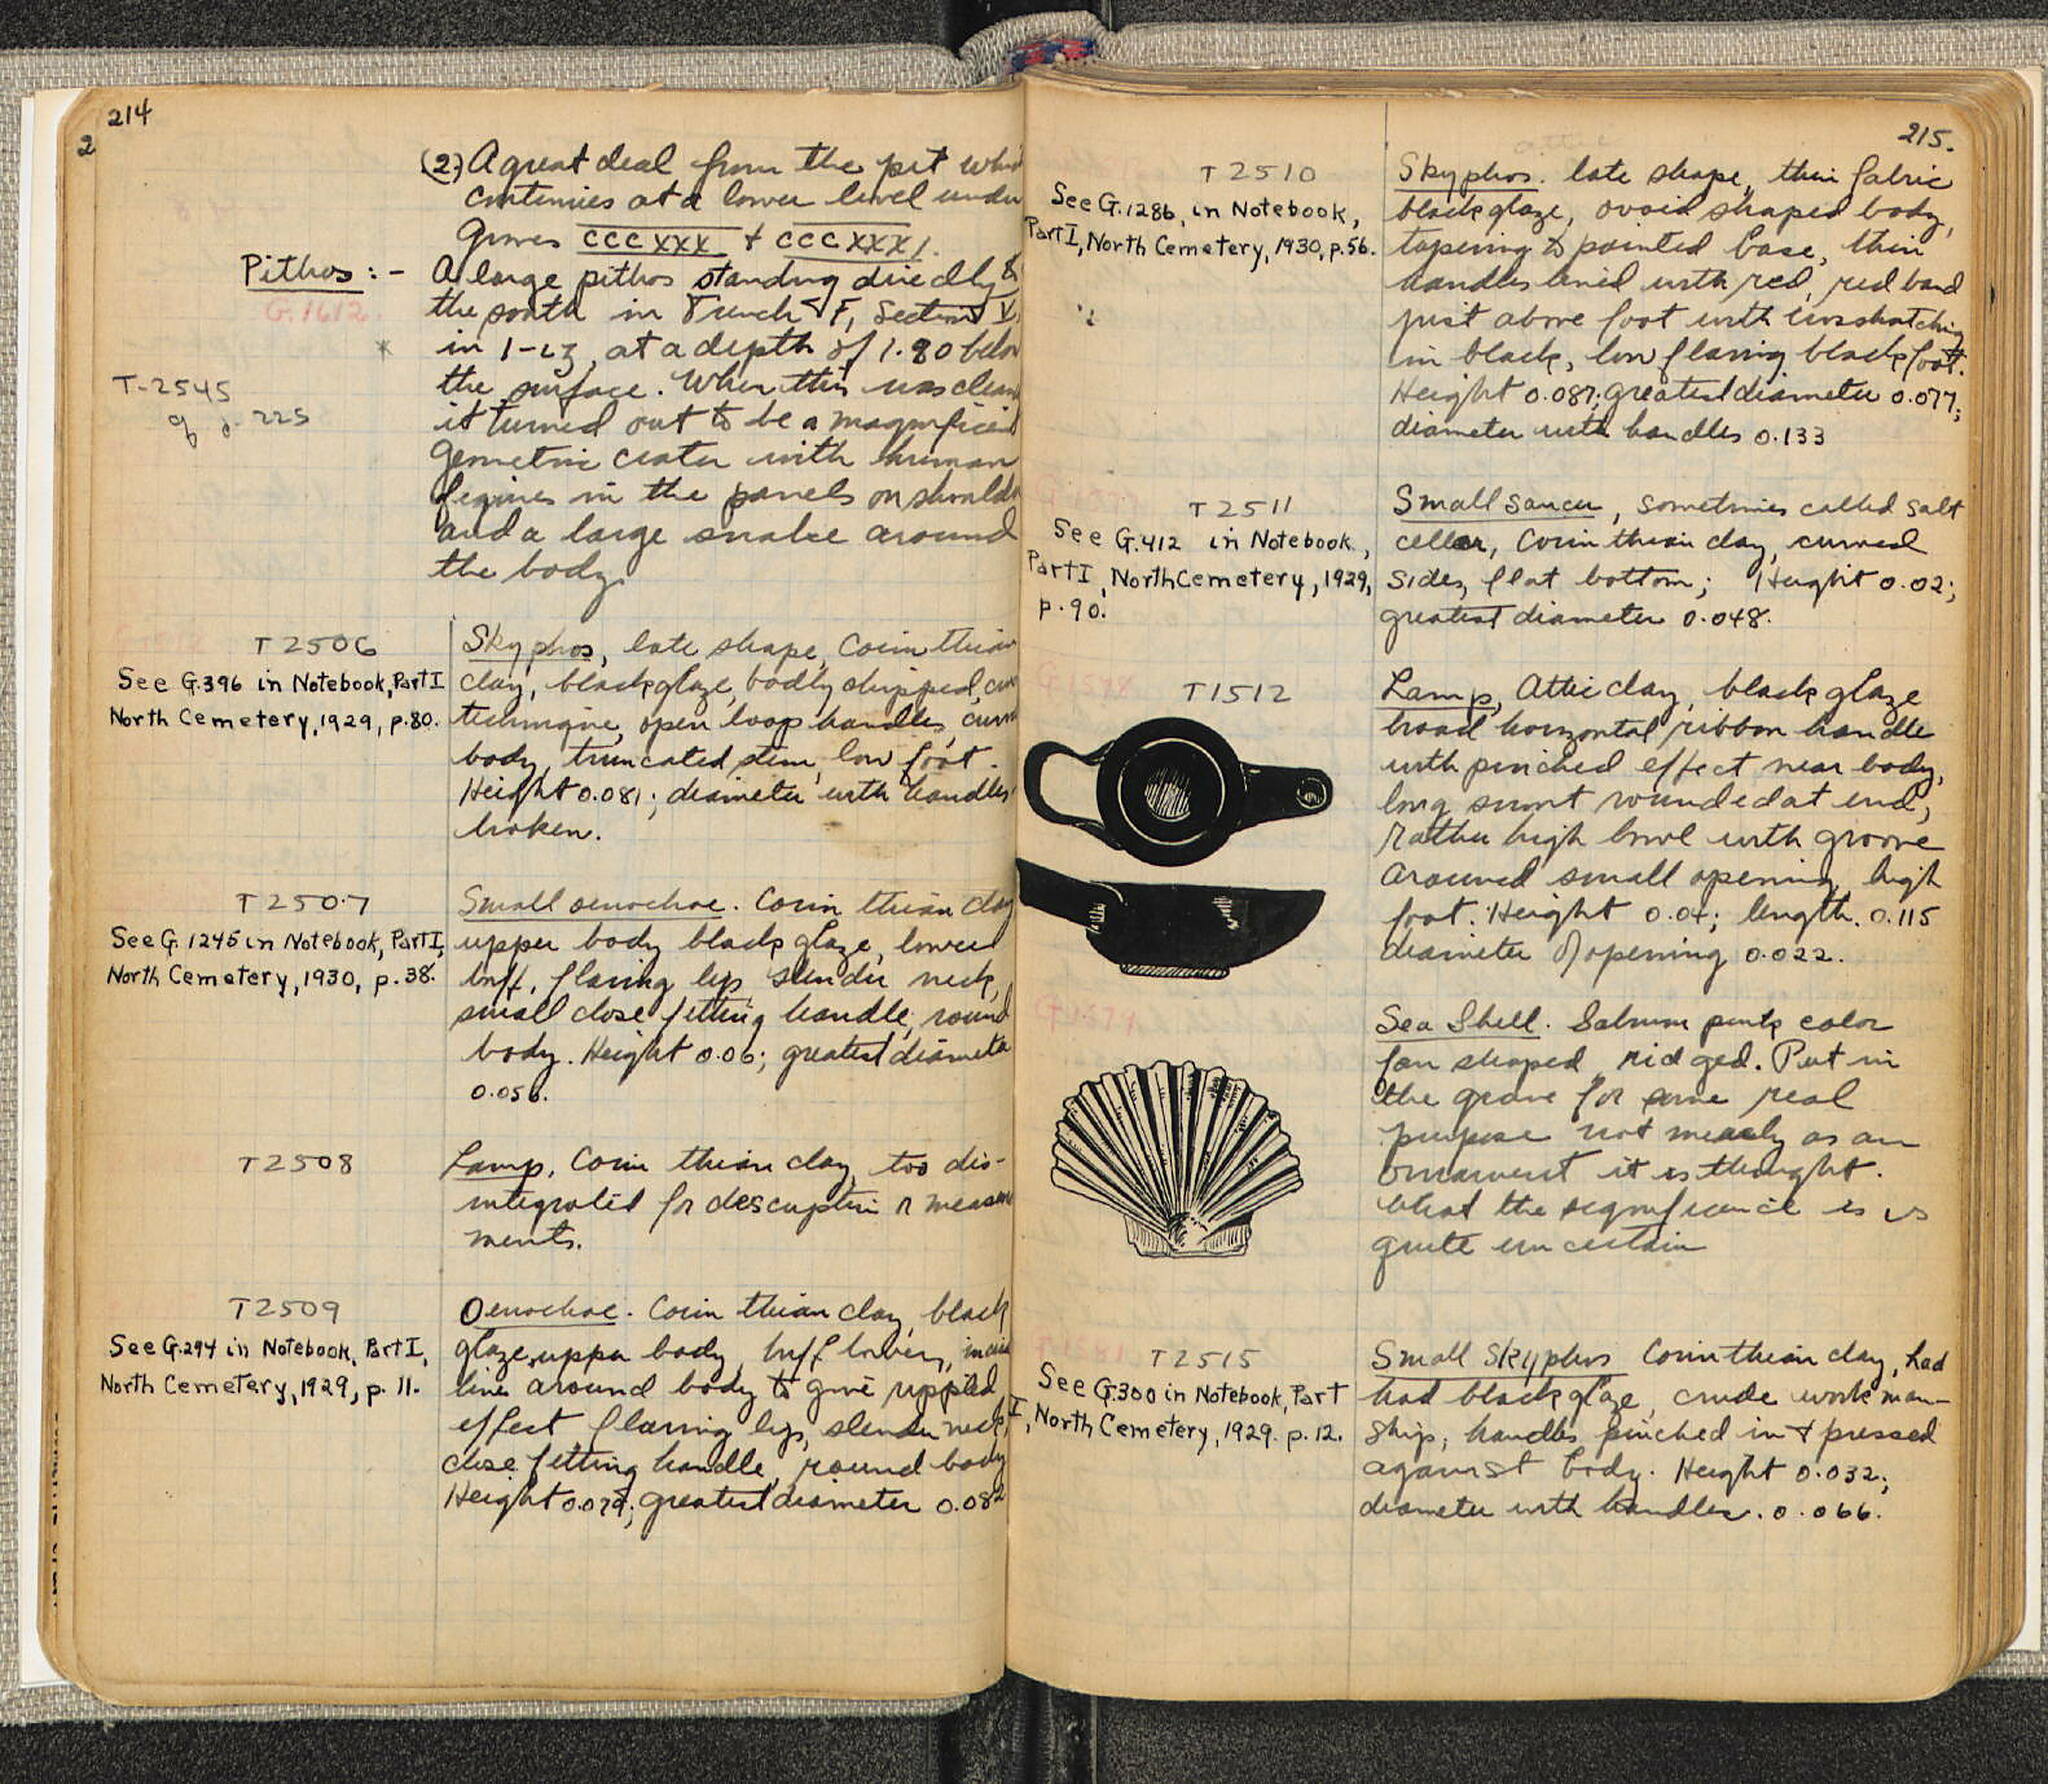 214
2
(2) A great deal from the pit
continues at a lower level under
Graves CCCXXX + CCCXXXI.
Pithos: - A large pithos standing directly
G.1612.
the south in Trench F, Section V,
in 1-23, at a depth of 1.80 below
T-2545
the surface. When this was
225
it turned out to be a magnificent
Geometric crater with human
figures in the panels on shoulder
and a large snake around
the body.
T 2506
See G.396 in Notebook, Part I
North Cemetery, 1929, p.80.
Skyphos, late shape, Corinthian
clay, black glaze, badly chipped,
technique, open loop handles,
body, truncated stem, low foot.
Height 0.081; diameter with handles
broken.
T 2507
See G. 1245 in Notebook, Part I,
North Cemetery, 1930, p.38.
Small oenochoe. Corinthian clay
upper body black glaze, lower
buff, flaring lip, slender neck,
small close fitting handle, round
body. Height 0.06; greatest diameter
0.056.
T 2508
Lamp, Corinthian clay, too dis-
integrated for description or
ments.
T 2509
See G.294 in Notebook, Part I,
North Cemetery, 1929, p. 11.
Oenochoe. Corinthian clay, black
glaze, upper body, buff lower,
line around body to give rippled
effect, flaring lip, slender neck,
close fitting handle, round body
Height 0.079; greatest diameter 0.082
215.
T 2510
See G.1286, in Notebook,
Part I, North Cemetery, 1930, p.56.
Skyphos. late shape, thin fabric
black glaze, ovoid shaped body,
tapering to pointed base, thin
handles lined with red, red band
just above foot with crosshatching
in black, low flaring black foot.
Height 0.087; greatest diameter 0.077;
diameter with handles 0.133
T 2511
See G.412 in Notebook,
Part I, North Cemetery, 1929,
p.90.
Small saucer, sometimes called salt
cellar, Corinthian clay, curved
sides, flat bottom; Height 0.02;
greatest diameter 0.048.
T1512
Lamp, Attic clay, black glaze
broad horizontal ribbon handle
with pinched effect near body,
long snout rounded at end,
rather high bowl with groove
around small opening, high
foot. Height 0.04; length. 0.115
diameter of opening 0.022.
G.1579
Sea Shell. Salmon pink color
fan shaped, ridged. Put in
the grave for some real
purpose not merely as an
ornament it is thought.
What the significance is is
quite uncertain
T 2515
See G.300 in Notebook, Part
I, North Cemetery, 1929. p.12.
Small Skyphos Corinthian clay, had
had black glaze, crude workman-
ship, handles pinched in + pressed
against body. Height 0.032;
diameter with handles. 0.066.